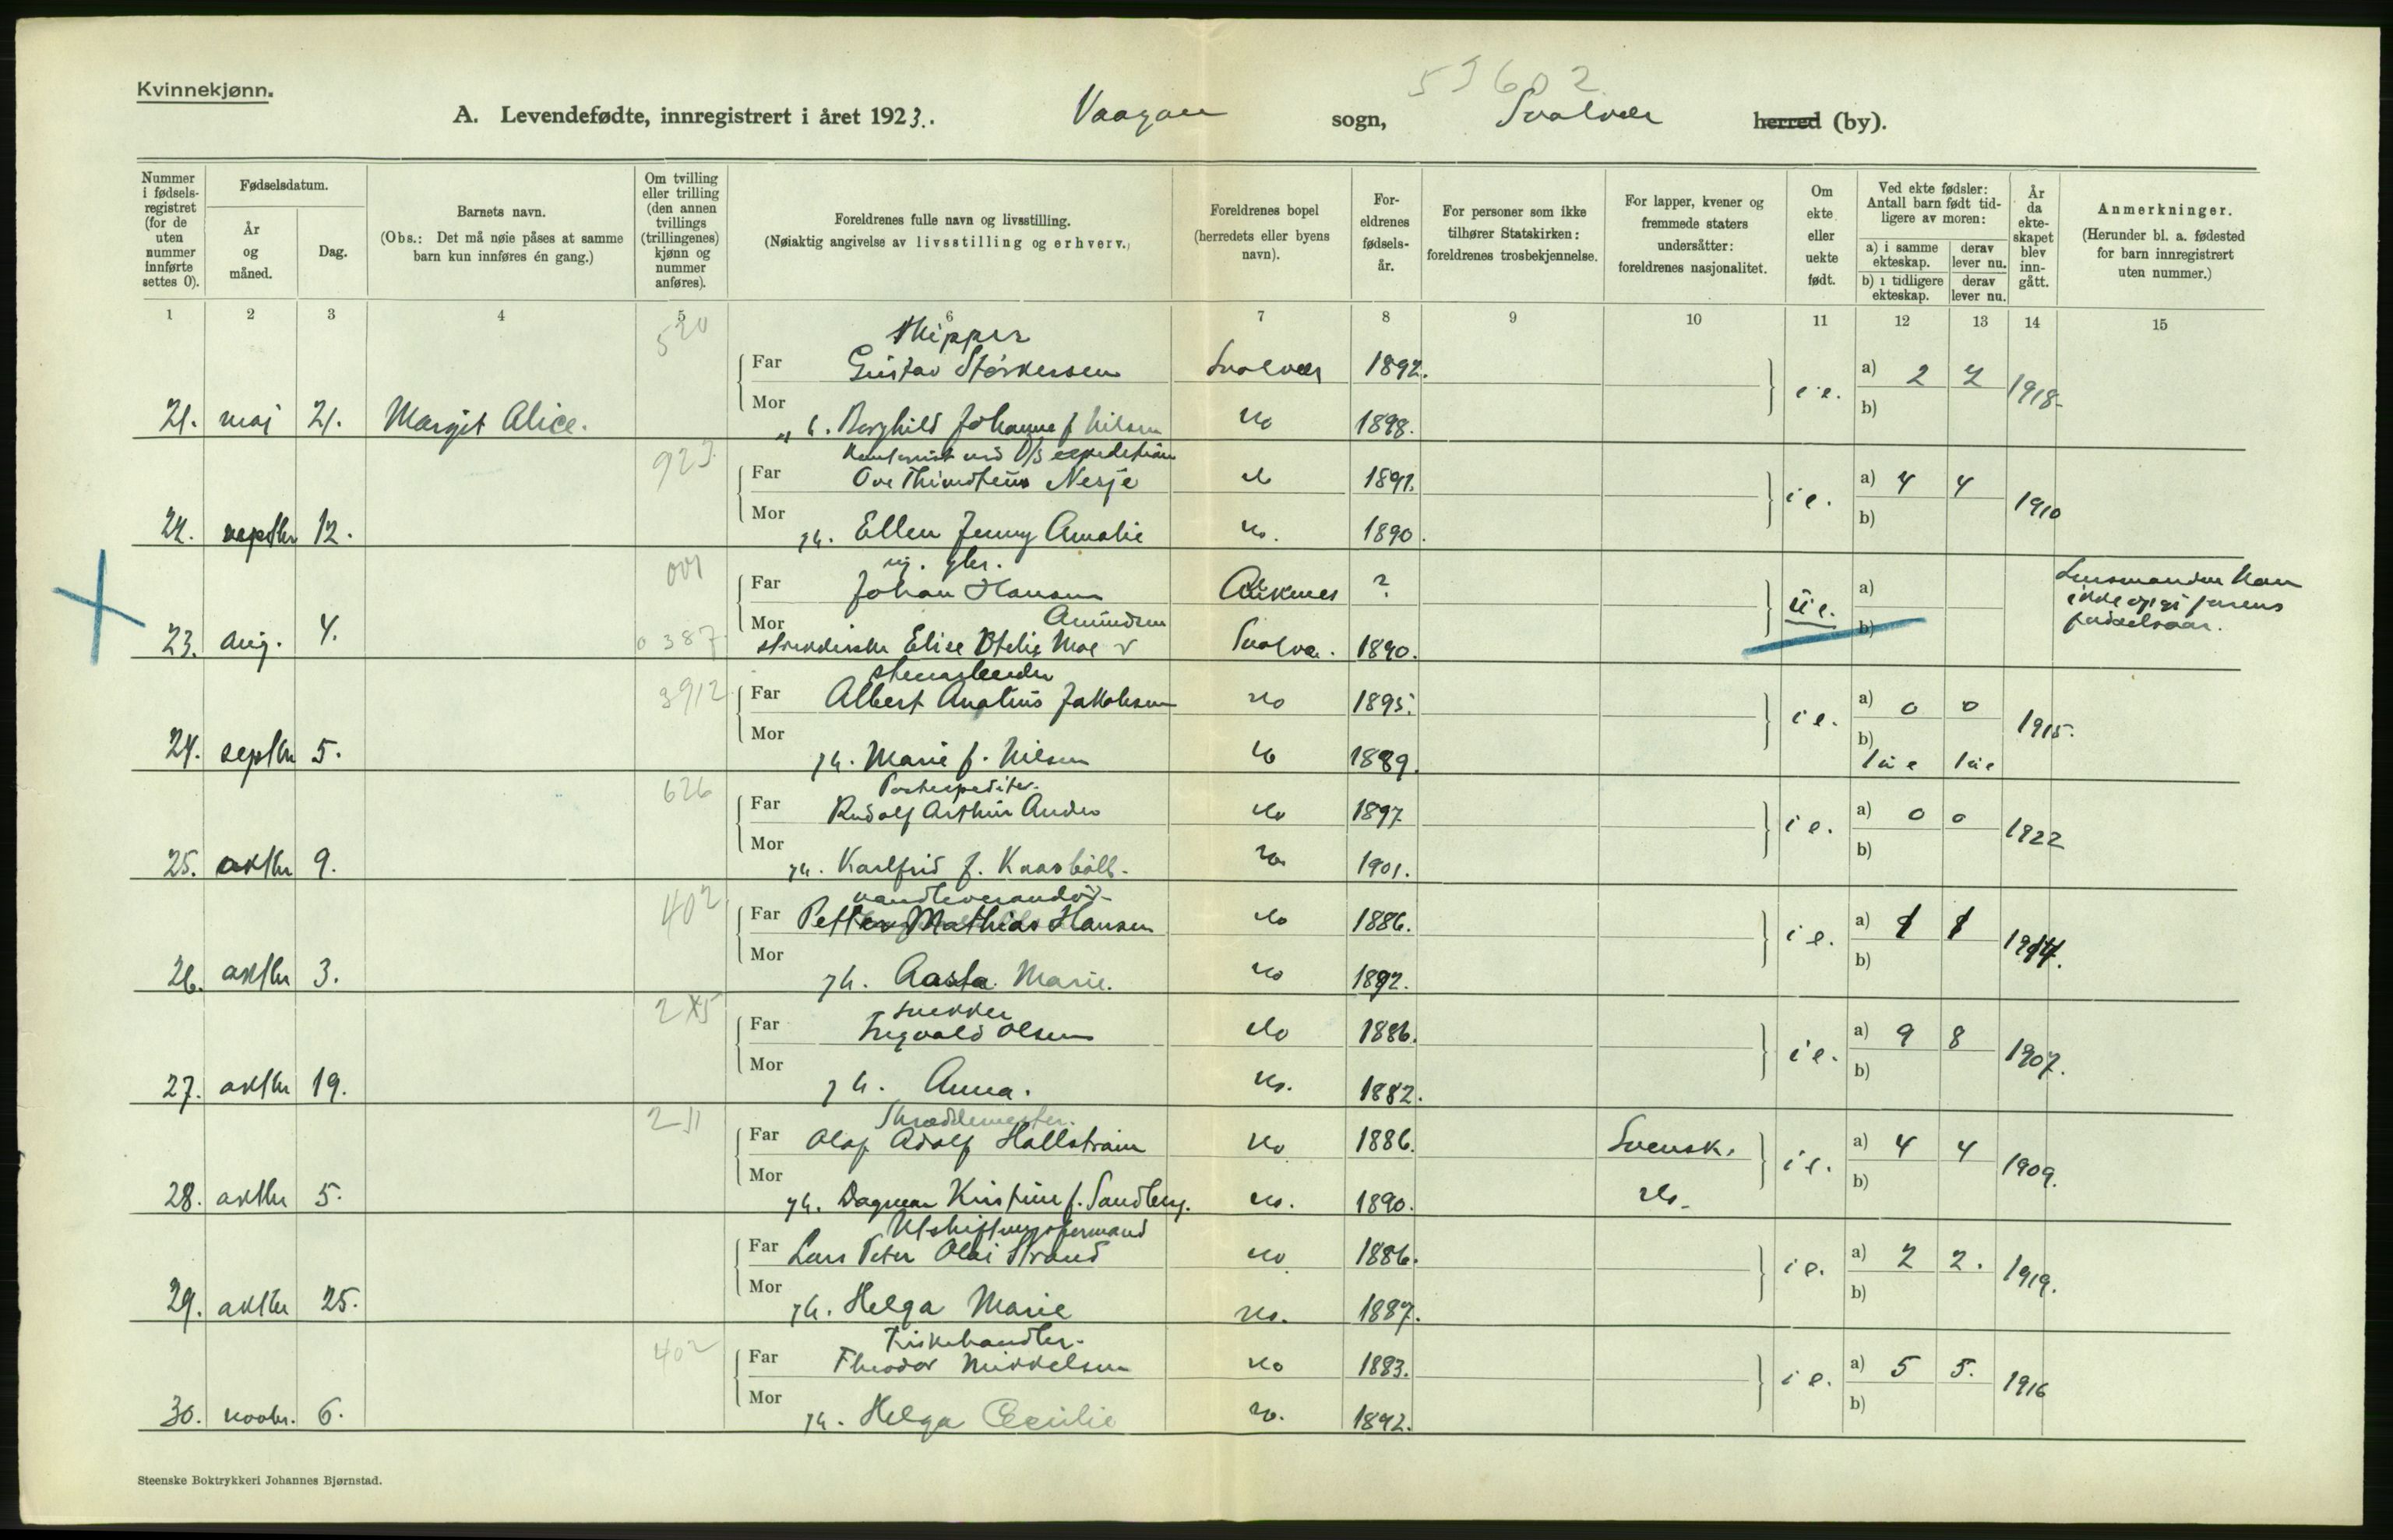 Kvinnekjønn.
59602
A. Levendefødte, innregistrert i året 1923. Vaagan sogn, Svolvær herred (by).
Nummer i fødselsregistret (for de uten nummer innførte settes 0).
Fødselsdatum.
År og måned.
Dag.
Barnets navn.
(Obs.: Det må nøie påses at samme barn kun innføres én gang.)
Om tvilling eller trilling (den annen tvillings (trillingenes) kjønn og nummer anføres).
Foreldrenes fulle navn og livsstilling.
(Nøiaktig angivelse av livsstilling og erhverv.)
Foreldrenes bopel (herredets eller byens navn).
Foreldrenes fødselsår.
For personer som ikke tilhører Statskirken: foreldrenes trosbekjennelse.
For lapper, kvener og fremmede staters undersåtter: foreldrenes nasjonalitet.
Om ekte eller uekte født.
Ved ekte fødsler: Antall barn født tidligere av moren:
a) i samme ekteskap.
derav lever nu.
b) i tidligere ekteskap.
derav lever nu.
År da ekteskapet blev inngått.
Anmerkninger.
(Herunder bl. a. fødested for barn innregistrert uten nummer.)
1 2 3 4 5 6 7 8 9 10 11 12 13 14 15
520 Skipper
Far Gustav Størkersen Svolvær 1892. i e. a) 2 2 1918.
21. mai 21. Margit Alice. Mor Borghild Johanne f Nilsen do 1898. b)
923 Kontorist ved D/S expedition
Far Ove Thimoteus Nesje do 1891. i e. a) 4 4 1910
22. septbr 12. Mor h. Ellen Jenny Amalie do. 1890. b)
001 ug. gbr.
Far Johan Hansen ? ue. a)
Amundsen
23. Aug. 4. 0387 Mor Elise Otelie Moe v Svolvær. 1890. b)
3912
Far Albert Anatius Jakobsen do 1895. i e. a) 0 0 1915.
24. septbr 5. Mor h. Marie f. Nilsen do 1889. b) 1 ue 1 ue
626 Postexpeditør.
Far Rudolf Arthur Anders do 1897 i e. a) 0 0 1922
25. oktbr 9. Mor h. Karlfrid f. Kaarbøll. do 1901. b)
402 vandleverandør
Far Petter Mathias Hansen do 1886. i e. a) 1 1 1914.
26. oktbr 3. Mor h. Aasta Marie. do 1892. b)
215 snekker
Far Ingvald Olsen do 1886. i e. a) 9 8 1907.
27. oktbr 19. Mor h. Anna. do. 1882. b)
211 Skræddermester.
Far Olaf Adolf Hallstrøm do 1886. Svensk. i e. a) 4 4 1909.
28. oktbr 5. Mor h. Dagmar Kristine f. Sandberg. do. 1890. do. b)
Utskiftningsformand
Far Lars Peter Olai Strand do 1886. i e. a) 2 2. 1919.
29. oktbr 25. Mor h. Helga Marie do. 1887. b)
402 Fiskehandler.
Far Theodor Mikkelsen do 1883. i e. a) 5 5. 1916
30. novbr. 6. Mor h. Helga Cecilie do. 1892. b)
Steenske Boktrykkeri Johannes Bjørnstad.